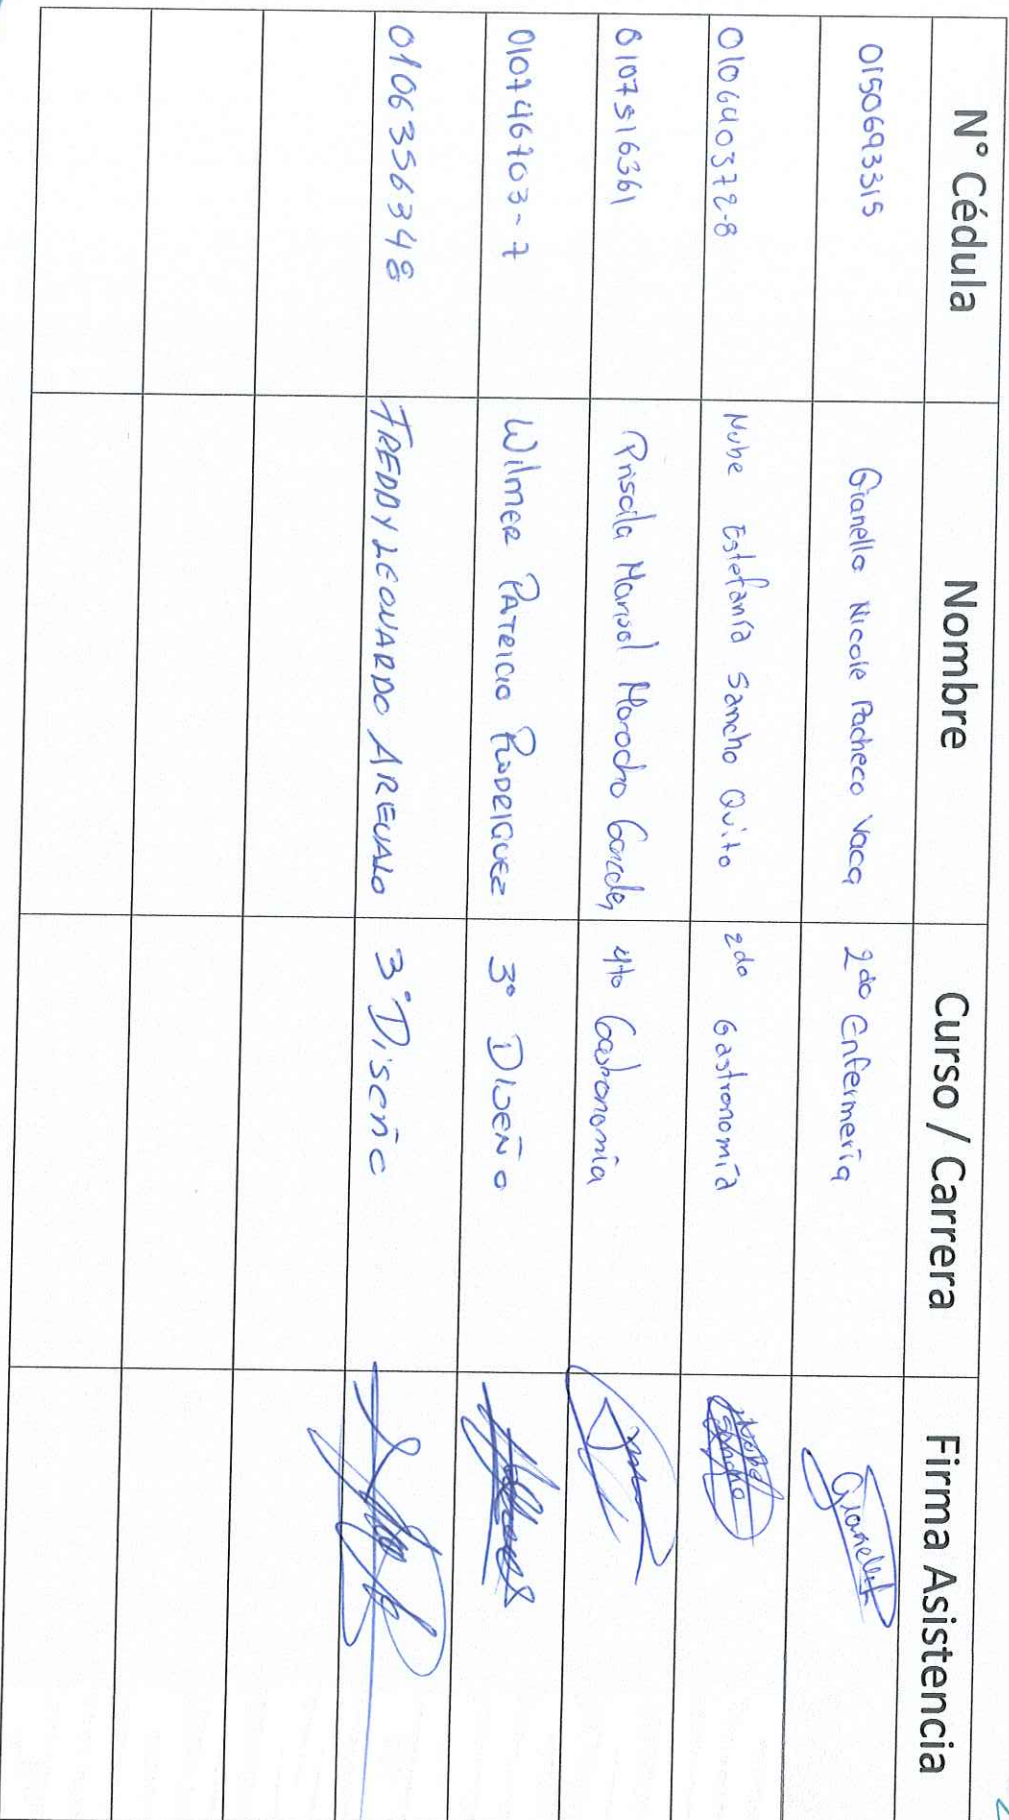 N° Cédula Nombre Curso / Carrera Firma Asistencia
0150693315 Gianella Nicole Pacheco Vaca 2do Enfermería Gianella
010640372-8 Nube Estefanía Sancho Quito 2do Gastronomía Nube Sancho
0107516361 Priscila Marisol Morocho 4to Gastronomía
010746703-7 Wilmer Patricio Rodriguez 3° Diseño
0106356348 FREDDY LEONARDO AREVALO 3° Diseño